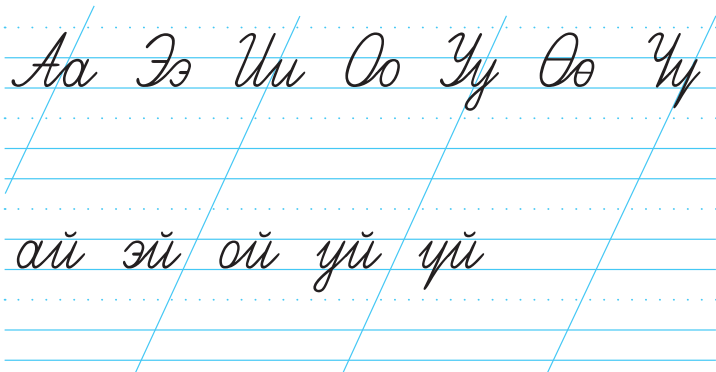 Аа Ээ Ии Оо Уу Өө Үү
ай эй ой уй үй